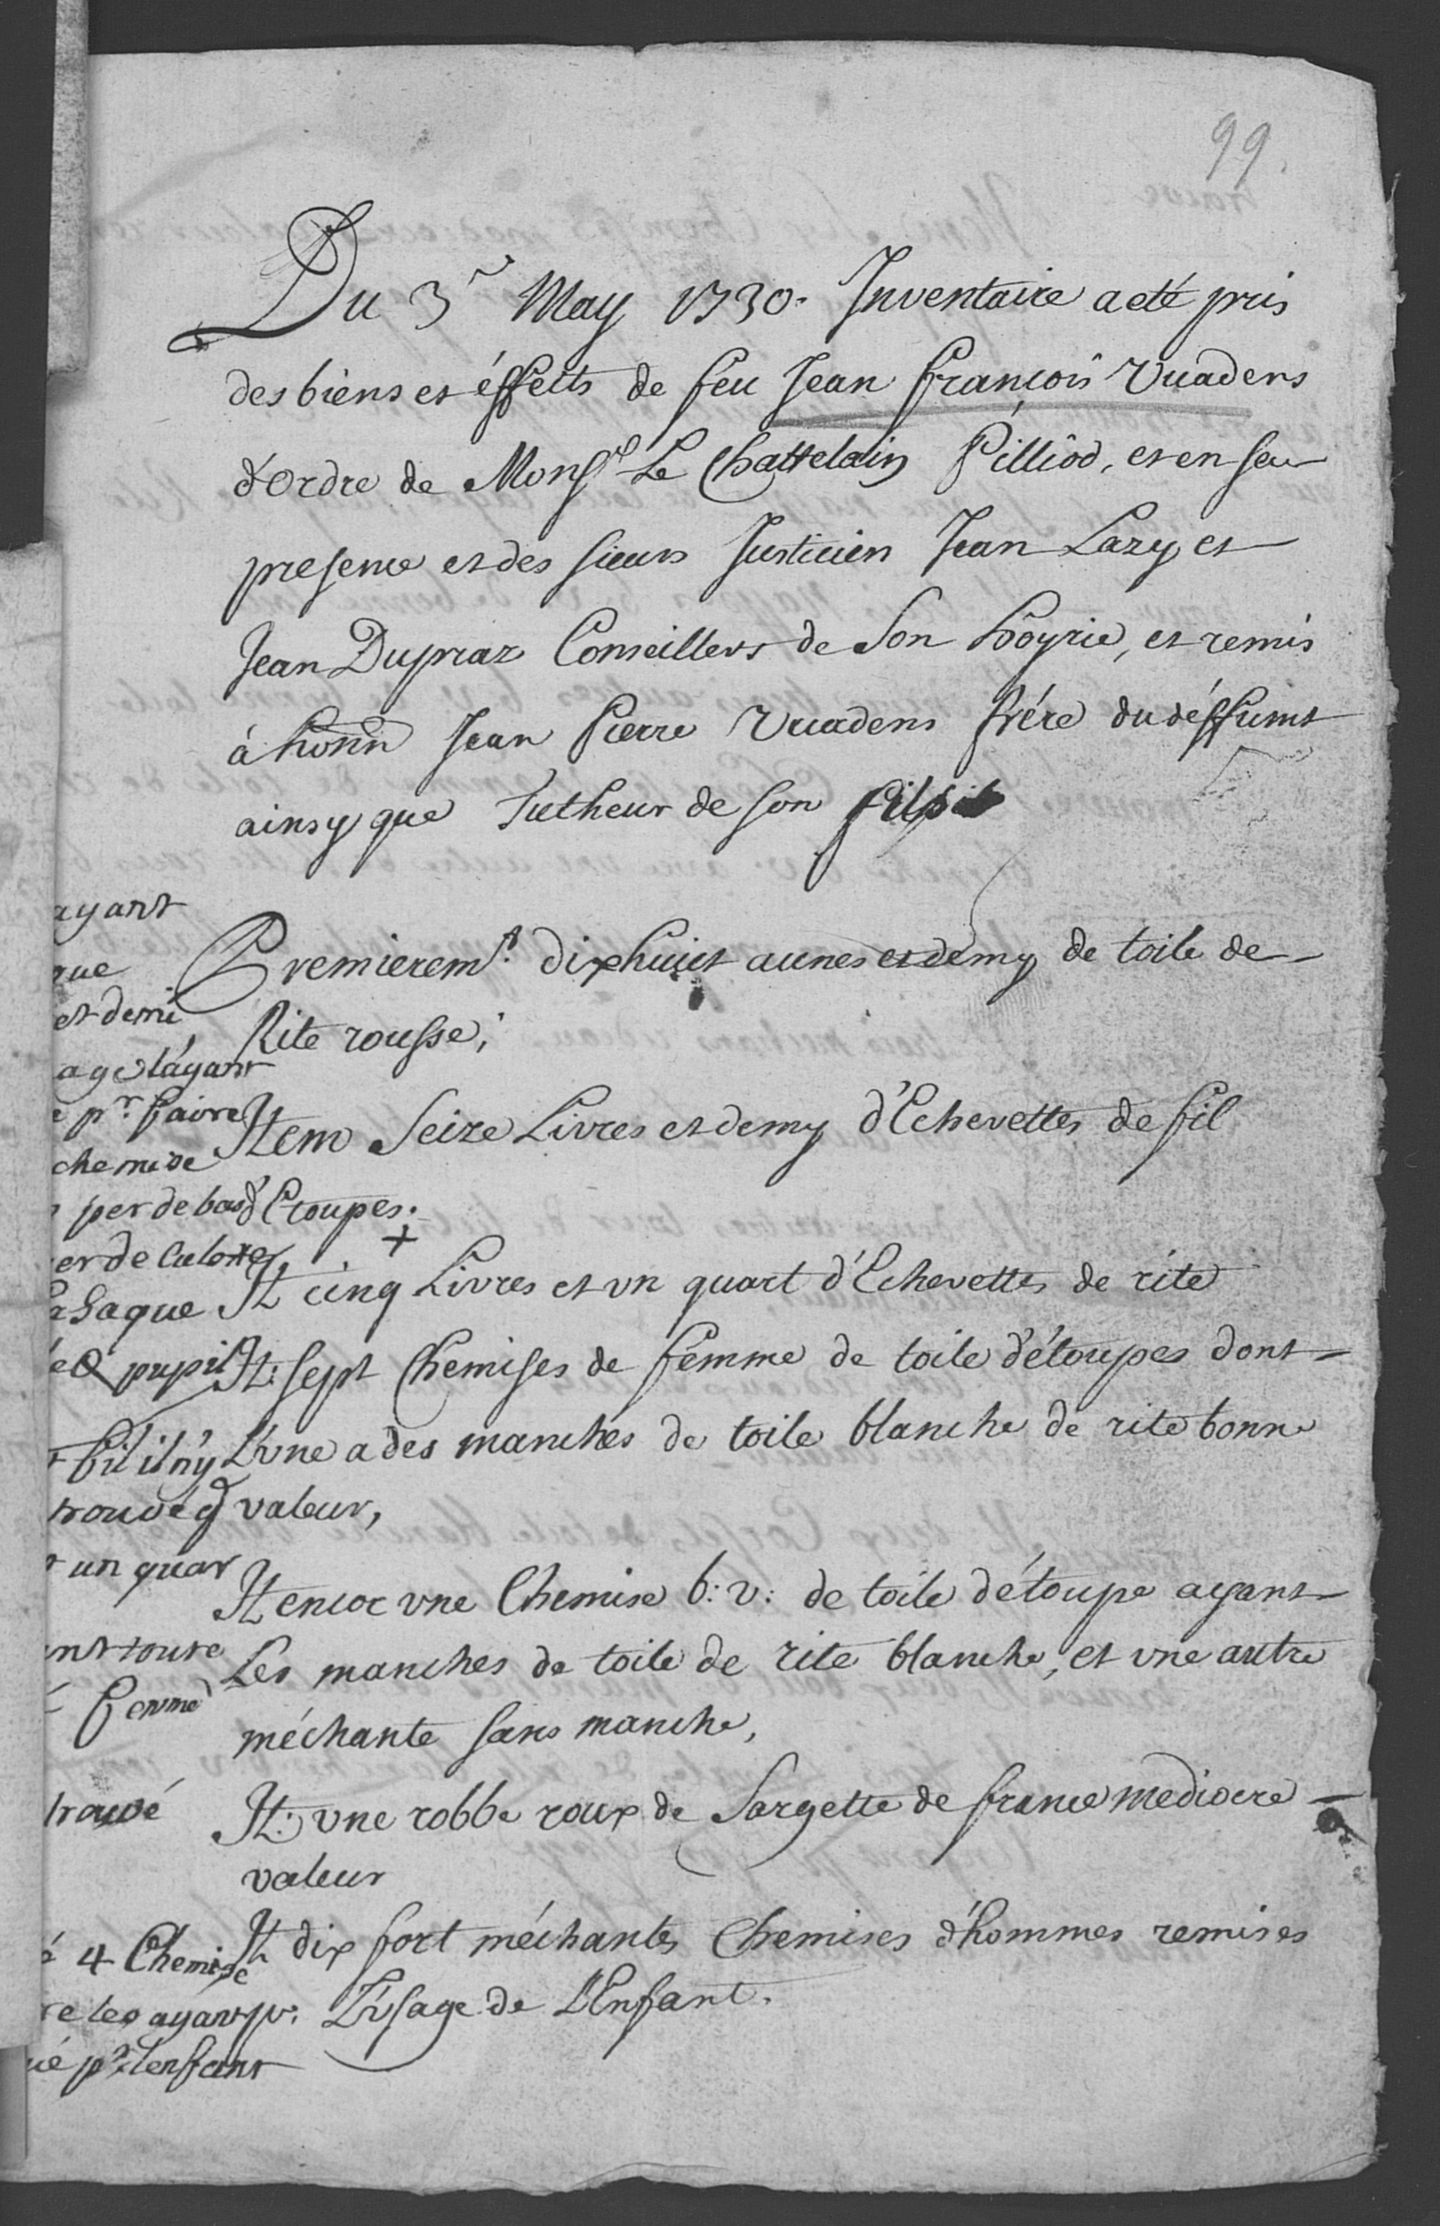 99.
Du 3.e May 1730. Inventaire a eté pris
des biens et éffets de feu Jean françois Vuadens
d'Ordre de Monsr Le Chattelain Pilliod, et en sa
presence et des sieurs Justicien Jean Lazy, et
Jean Dupraz Conseillers de Son Hoÿrie, et remis
à honn Jean Pierre Vuadens frére du déffunt
ainsy que Tutheur de son fils
ayant
que
et demi
Premieremt. dixhuict aunes et demy de toile de
Rite rousse;
age layant
pr. faire
Item Seize Livres et demy d'Echevettes de fil
chemise
per de bas
d'Etoupes. +
er de culotte
It cinq Livres et vn quart d'Echevettes de rite
Casaque
It: sept Chemises de femme de toile d'étoupes dont
pupil
L'vne a des manches de toile blanche de rite bonne
fil il n'y
valeur,
trouvé q
un quar
It encor vne Chemise b: v: de toile d'étoupe ayant
Les manches de toile de rite blanche, et vne autre
toute
méchante sans manche,
It: vne robbe roux de Sargette de france mediocre
trouvé
valeur
It dix fort méchantes Chemises d'hommes remises
4 Chemise
pr. L'vsage de L'Enfant.
les ayant
pr. lenfant